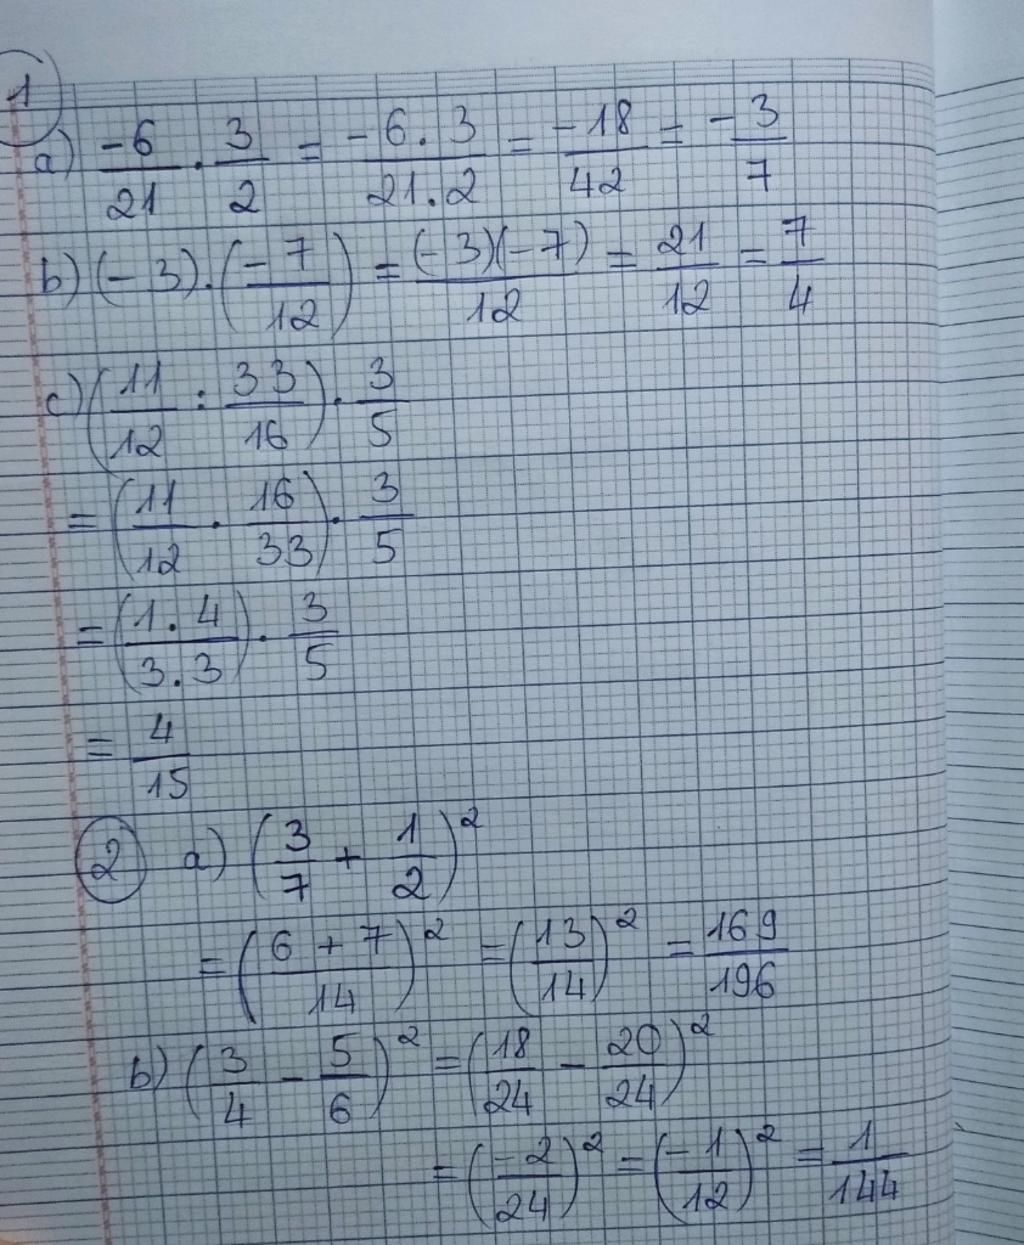 1
a) -6/21 . 3/2 = -6.3/21.2 = -18/42 = -3/7
b) (-3).(-7/12) = (-3)(-7)/12 = 21/12 = 7/4
c) (11/12 : 33/16) . 3/5
= (11/12 . 16/33) . 3/5
= (1.4/3.3) . 3/5
= 4/15
2 a) (3/7 + 1/2)²
= (6+7/14)² = (13/14)² = 169/196
b) (3/4 - 5/6)² = (18/24 - 20/24)²
= (-2/24)² = (-1/12)² = 1/144